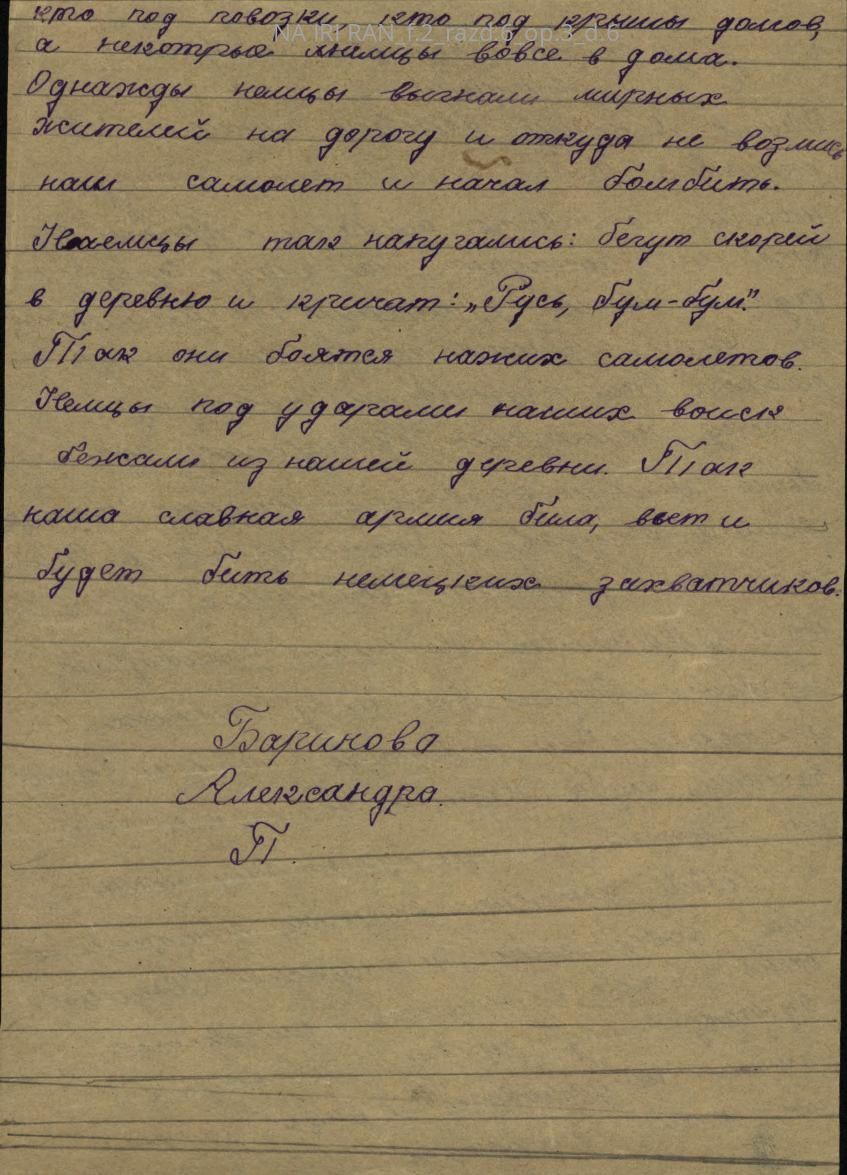 кто под повозки, кто под крыши домов,
NA IRI RAN_f.2_razd.6_op.3_d.6
а некотрые немцы вовсе в дома.
Однажды немцы выгнали мирных
жителей на дорогу и откуда не возмись
наш самолет и начал бомбить.
Неемцы так напугались: бегут скорей
в деревню и кричат: „Русь, бум-бум."
Так они боятся наших самолетов.
Немцы под ударами наших воиск
бежали из нашей деревни. Так
наша славная армия била, бьет и
будет бить немецких захватчиков.
Баринова
Александра
П.